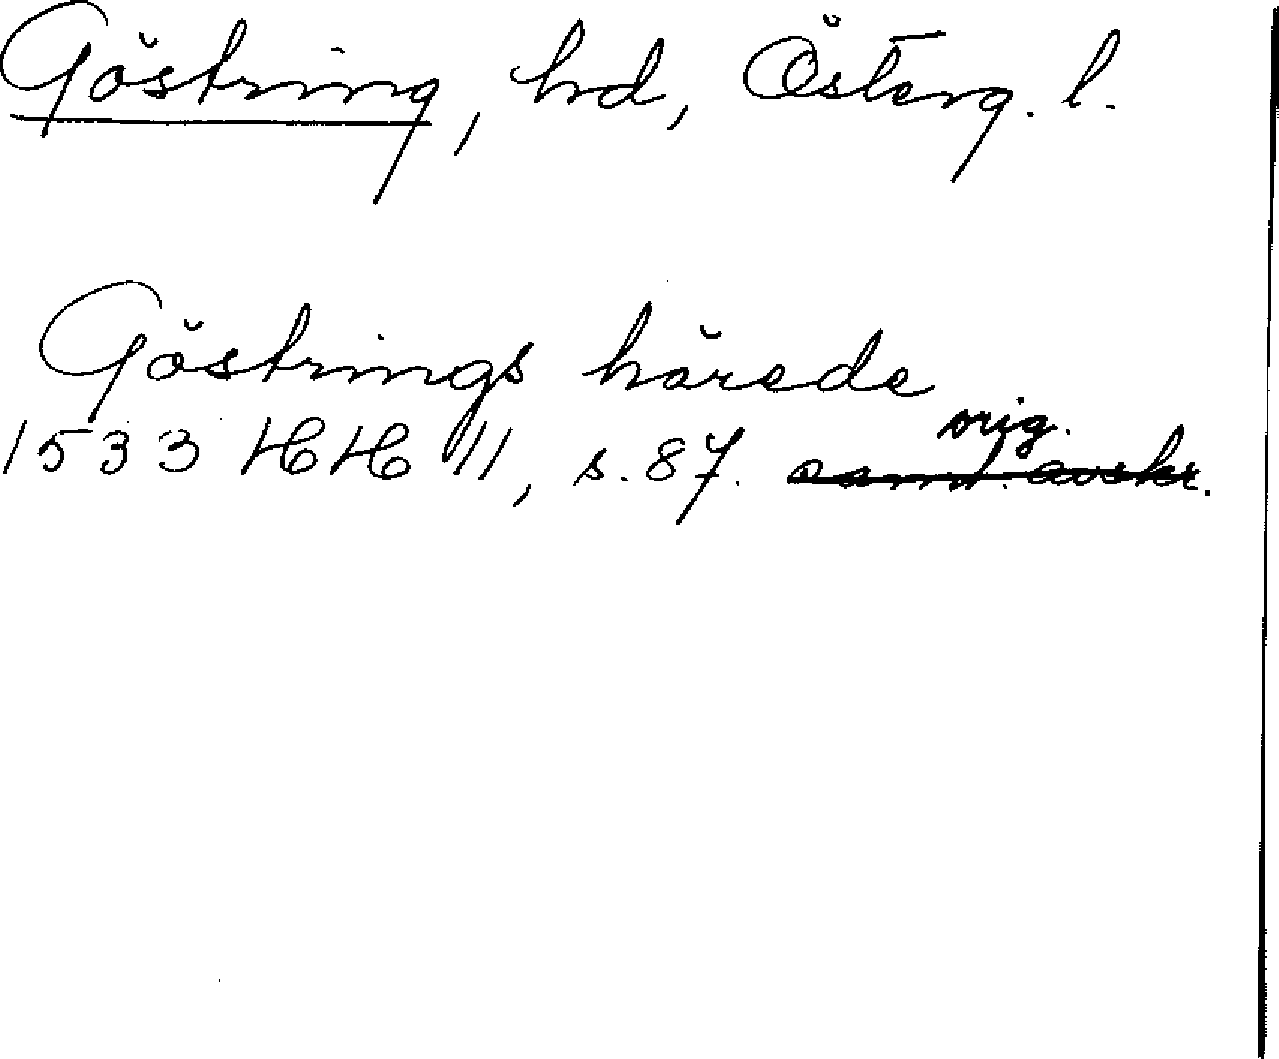 Göstring, hd, Österg. l.
Göstrings härede
1533 HH 11, s. 87. orig.
samt. avskr.